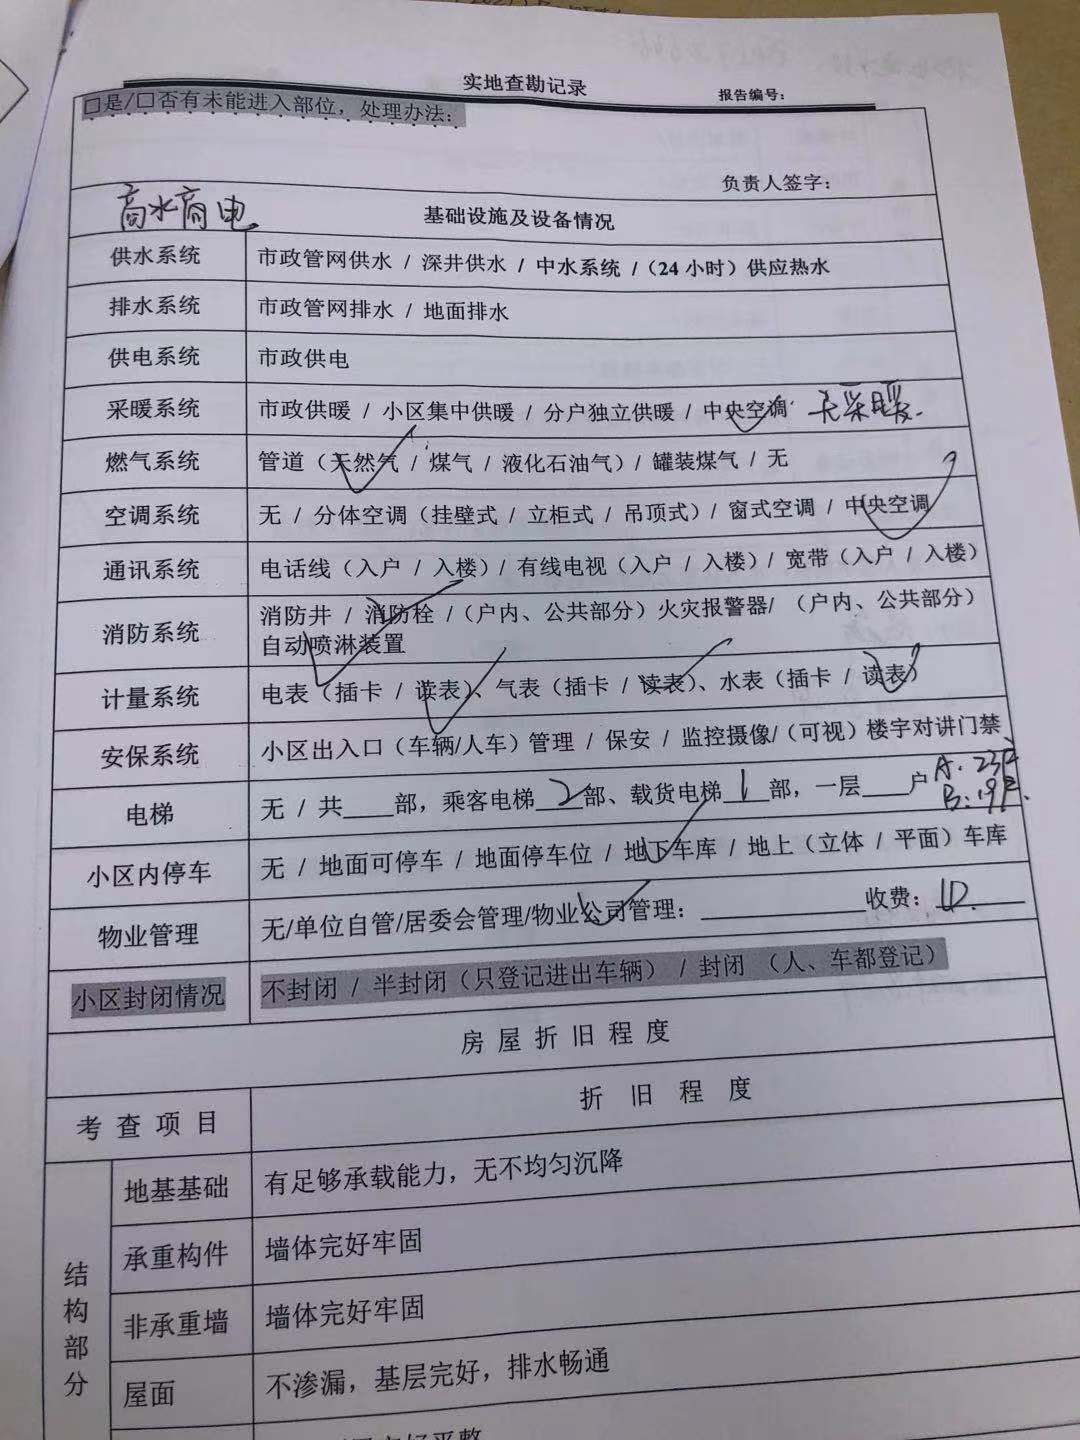 实地查勘记录
报告编号：
□是/□否有未能进入部位，处理办法：
负责人签字：
商水商电
基础设施及设备情况
供水系统 市政管网供水 / 深井供水 / 中水系统 /（24 小时）供应热水
排水系统 市政管网排水 / 地面排水
供电系统 市政供电
采暖系统 市政供暖 / 小区集中供暖 / 分户独立供暖 / 中央空调 无采暖.
燃气系统 管道（天然气 / 煤气 / 液化石油气）/ 罐装煤气 / 无
空调系统 无 / 分体空调（挂壁式 / 立柜式 / 吊顶式）/ 窗式空调 / 中央空调
通讯系统 电话线（入户 / 入楼）/ 有线电视（入户 / 入楼）/ 宽带（入户 / 入楼）
消防系统 消防井 / 消防栓 /（户内、公共部分）火灾报警器/ （户内、公共部分）
自动喷淋装置
计量系统 电表（插卡 / 读表）、气表（插卡 / 读表）、水表（插卡 / 读表）
安保系统 小区出入口（车辆/人车）管理 / 保安 / 监控摄像/（可视）楼宇对讲门禁
电梯 无 / 共____部，乘客电梯 2 部、载货电梯 1 部，一层____户 A：23户
B：19户
小区内停车 无 / 地面可停车 / 地面停车位 / 地下车库 / 地上（立体 / 平面）车库
物业管理 无/单位自管/居委会管理/物业公司管理：__________收费：10.
小区封闭情况 不封闭 / 半封闭（只登记进出车辆） / 封闭 （人、车都登记）
房屋折旧程度
考查项目 折旧程度
结构部分
地基基础 有足够承载能力，无不均匀沉降
承重构件 墙体完好牢固
非承重墙 墙体完好牢固
屋面 不渗漏，基层完好，排水畅通